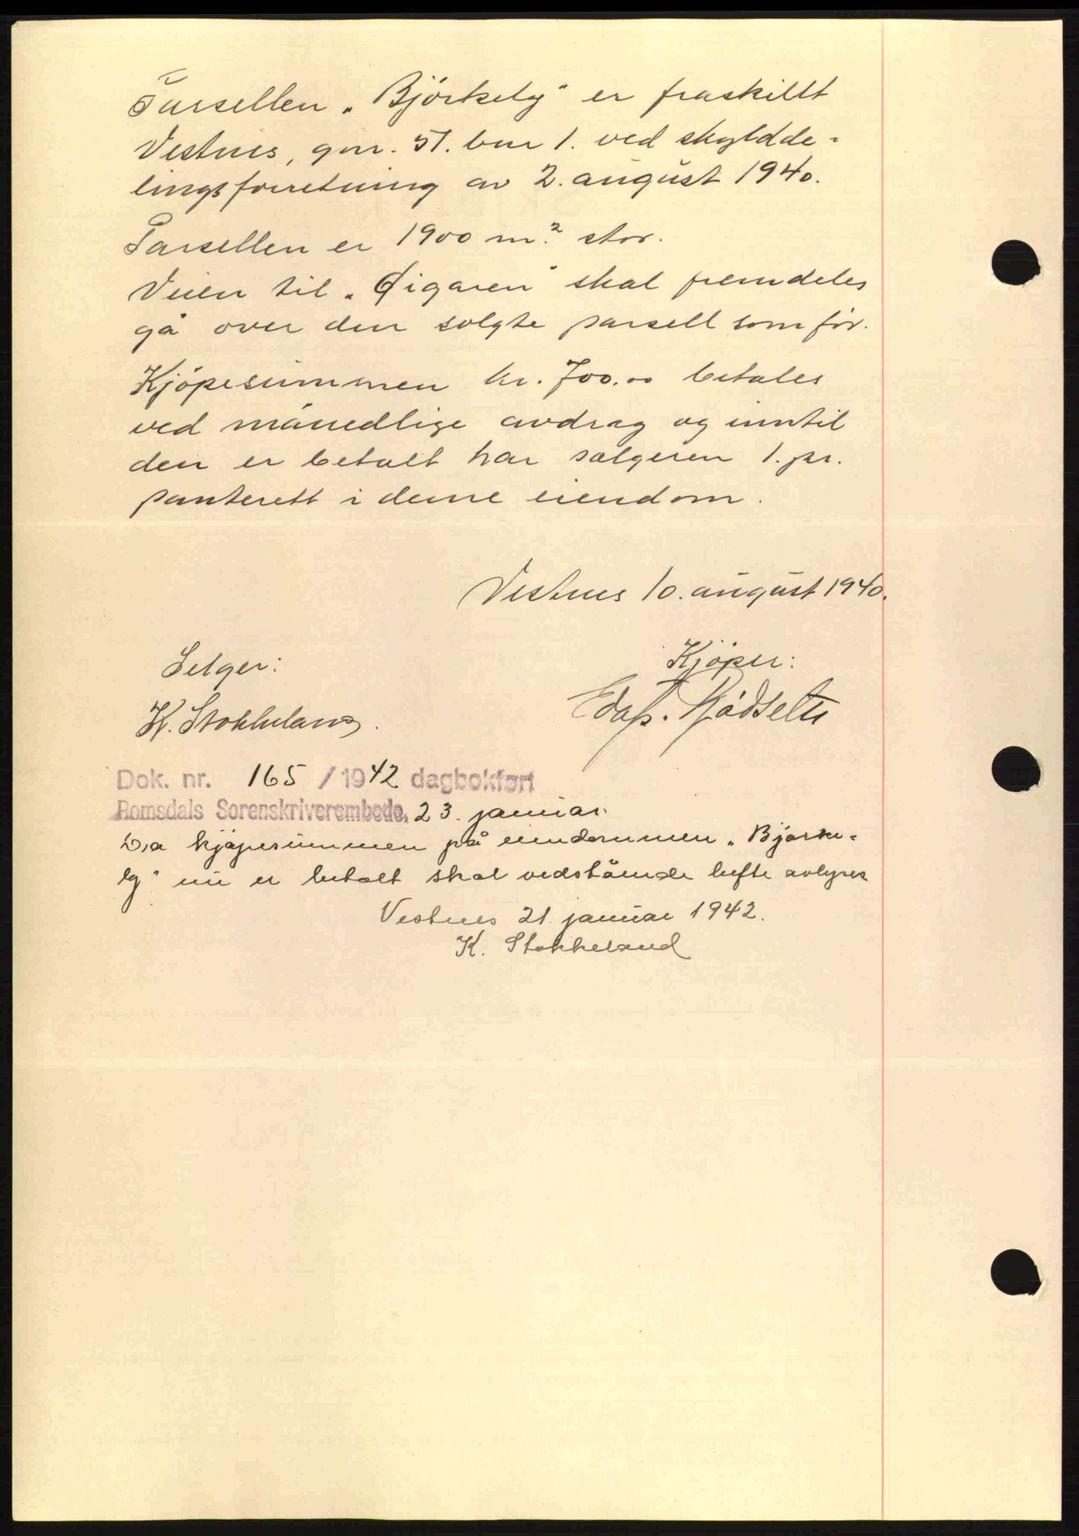 Parsellen „Björkely" er fraskillt
Vestnes, gnr. 51. bnr 1. ved skyldde-
lingsforretning av 2. august 1940.
Parsellen er 1900 m² stor.
Veien til „Øigaren" skal fremdeles
gå over den solgte parsell som för.
Kjöpesummen kr. 700.00 betales
ved månedlige avdrag og inntil
den er betalt har selgeren 1. pr.
panterett i denne eiendom.
Vestnes 10. august 1940.
Selger:
Kjöper:
K. Stokkeland.
Rødseth
Dok. nr. 165 / 1942 dagbokført
Romsdals Sorenskriverembede, 23. januar
Da kjøpesummen på eiendommen „Bjørke-
ly" nu er betalt skal vedstående hefte avlyses
Vestnes 21 januar 1942.
K. Stokkeland